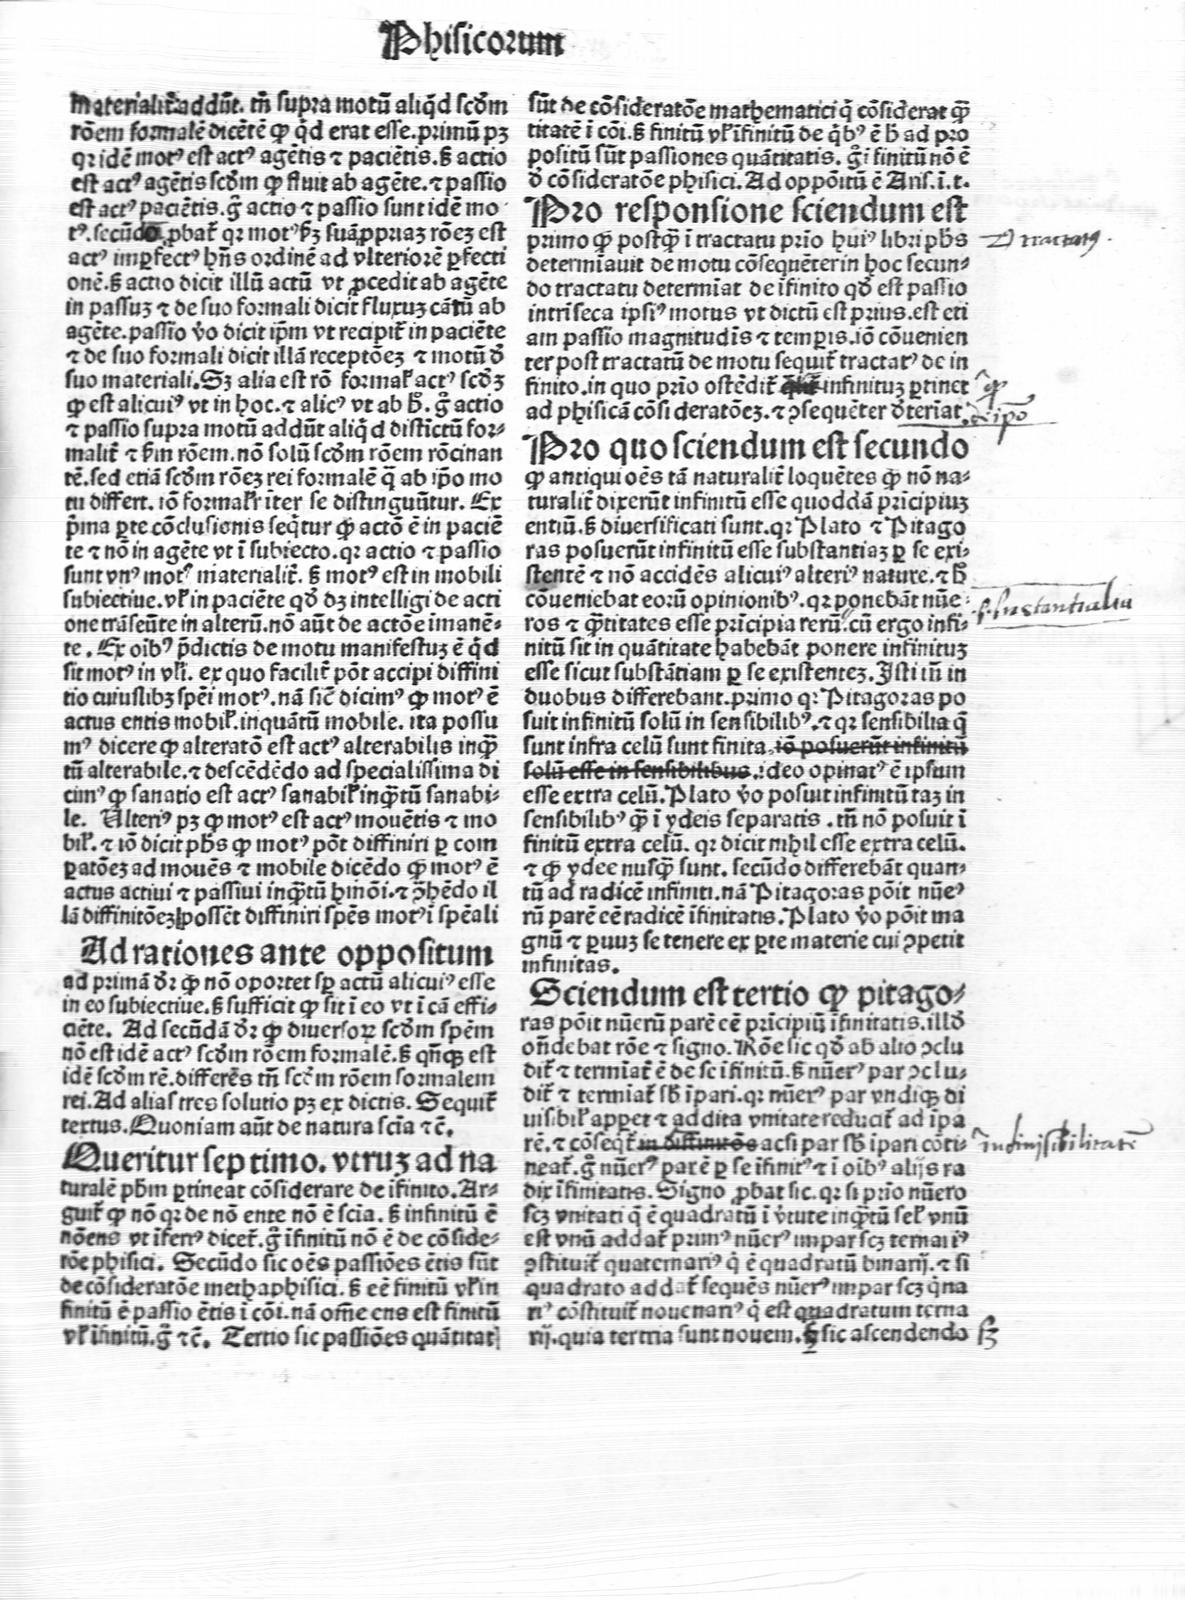 Phisicorum
Materialit̃ addūt. tñ supra motū aliq̄d scđm
rōem formalē dicētē ꝙ q̄d erat esse. primū pꝫ
qꝛ idē motꝰ est actꝰ agētis ⁊ paciētis. ꝭ actio
est actꝰ agētis scđm ꝙ fluit ab agēte. ⁊ passio
est actꝰ paciētis. g̃ actio ⁊ passio sunt idē mo
tꝰ. secūdo ꝓbat̃ qꝛ motꝰ ꝭꝫ suā ꝓpriaꝫ rōeꝫ est
actꝰ imꝑfectꝰ hñs ordinē ad vlteriorē ꝑfecti
onē. ꝭ actio dicit illū actū vt ꝓcedit ab agēte
in passuꝫ ⁊ de suo formali dicit fluxuꝫ cātū ab
agēte. passio v̄o dicit ip̄m vt recipit̃ in paciēte
⁊ de suo formali dicit illā receptōeꝫ ⁊ motū đ
suo materiali. Sꝫ alia est rō formal̃ actꝰ scđꝫ
ꝙ est alicuiꝰ vt in hoc. ⁊ alicꝰ vt ab h̄. g̃ actio
⁊ passio supra motū addūt aliq̄d distictū for-
malit̃ ⁊ ꝭm rōem. nō solū scđm rōem rōcinan
tē. sed etiā scđm rōeꝫ rei formalē q̄ ab ip̄o mo
tu differt. iō formal̃r īter se distinguūtur. Ex
p̄ma ꝑte cōclusionis seq̄tur ꝙ actō ē in paciē
te ⁊ nō in agēte vt ī subiecto. qꝛ actio ⁊ passio
sunt vnꝰ motꝰ materialit̃. ꝭ motꝰ est in mobili
subiectiue. vl̃ in paciēte qđ dꝫ intelligi de acti
one trāseūte in alterū. nō aūt de actōe imanē-
te. Ex oībꝰ p̄dictis de motu manifestuꝫ ē q̄d
sit motꝰ in vl̃i. ex quo facilit̃ pōt accipi diffini
tio cuiuslibꝫ spēi motꝰ. nā sic̄ dicimꝰ ꝙ motꝰ ē
actus entis mobil̃. inquātū mobile. ita possu
mꝰ dicere ꝙ alteratō est actꝰ alterabilis inq̄ꝫ
tū alterabile. ⁊ descēdēdo ad specialissima di
cimꝰ ꝙ sanatio est actꝰ sanabil̃ inq̄ꝫtū sanabi-
le. Alteriꝰ pꝫ ꝙ motꝰ est actꝰ mouētis ⁊ mo
bil̃. ⁊ iō dicit pħs ꝙ motꝰ pōt diffiniri ꝑ com
ꝑatōeꝫ ad mouēs ⁊ mobile dicēdo ꝙ motꝰ ē
actus actiui ⁊ passiui inq̄ꝫtū hmōi. ⁊ ꝯñēdo il
lā diffinitōeꝫ possēt diffiniri spēs motꝰ ī spēali
Ad rationes ante oppositum
ad primā đr ꝙ nō oportet sꝑ actū alicuiꝰ esse
in eo subiectiue. ꝭ sufficit ꝙ sit ī eo vt ī cā effi-
ciēte. Ad secūdā đr ꝙ diuersoꝝ scđm spēm
nō est idē actꝰ scđm rōem formalē. ꝭ qñqꝫ est
idē scđm rē. differēs tñ scđm rōem formalem
rei. Ad alias tres solutio pꝫ ex dictis. Sequit̃
tertus. Quoniam aūt de natura scīa ⁊c̄.
Queritur septimo. vtruꝫ ad na
turalē pħm ꝑtineat cōsiderare de īfinito. Ar-
guit̃ ꝙ nō qꝛ de nō ente nō ē scīa. ꝭ infinitū ē
nōens vt īferꝰ dicet̃. g̃ īfinitū nō ē de cōside-
rōe phisici. Secūdo sic oēs passiōes ētis sūt
de cōsideratōe methaphisici. ꝭ eē finitū vl̃ in
finitū ē passio ētis ī cōi. nā om̄e ens est finitū
vl̃ īfinitū. g̃ ⁊c̄. Tertio sic passiōes quātitat
sūt de cōsideratōe mathematici q̄ cōsiderat q̄ꝫ
titatē ī cōi. ꝭ finitū vl̃ īfinitū de q̄bꝰ ē h̄ ad pro
positū sūt passiones quātitatis. g̃ ī finitū nō ē
đ cōsideratōe phisici. Ad oppōitū ē Aris. ī. t.
Pro responsione sciendum est
primo ꝙ postq̄ꝫ ī tractatu prīo huiꝰ libri pħs
determīauit de motu cōsequēter in hoc secun-
do tractatu determīat de īfinito qđ est passio
intriseca ipsiꝰ motus vt dictū est prius. est eti
am passio magnitudīs ⁊ temꝑis. iō cōuenien
ter post tractatū de motu sequit̃ tractatꝰ de in
finito. in quo prīo ostēdit̃ infinituꝫ ꝑtinet
ad phisicā cōsideratōeꝫ. ⁊ ꝯsequēter đteriat.
Pro quo sciendum est secundo
ꝙ antiqui oēs tā naturalit̃ loquētes ꝙ nō na-
turalit̃ dixerūt infinitū esse quoddā prīcipiuꝫ
entiū. ꝭ diuersificati sunt. qꝛ Plato ⁊ Pitago
ras posuerūt infinitū esse substantiaꝫ ꝑ se exi-
stentē ⁊ nō accidēs alicuiꝰ alteriꝰ nature. ⁊ h̄
cōueniebat eorū opinionibꝰ. qꝛ ponebāt nūe
ros ⁊ q̄ꝫtitates esse prīcipia rerū. cū ergo infi-
nitū sit in quātitate habebāt ponere infinituꝫ
esse sicut substātiam ꝑ se existenteꝫ. Isti tñ in
duobus differebant. primo qꝛ Pitagoras po
suit infinitū solū in sensibilibꝰ. ⁊ qꝛ sensibilia q̄
sunt infra celū sunt finita, iō posuerūt infinitū
solū esse in sensibilibus. ideo opinatꝰ ē ipsum
esse extra celū. Plato v̄o posuit infinitū taꝫ in
sensibilibꝰ q̄ꝫ ī ydeis separatis. tñ nō posuit ī
finitū extra celū. qꝛ dicit nihil esse extra celū.
⁊ ꝙ ydee nusq̄ꝫ sunt. secūdo differebāt quan-
tū ad radicē infiniti. nā Pitagoras pōit nūe
rū parē eē radicē īfinitatis. Plato v̄o pōit ma
gnū ⁊ ꝑuuꝫ se tenere ex ꝑte materie cui ꝯpetit
infinitas.
Sciendum est tertio ꝙ pitago-
ras pōit nūerū parē eē prīcipiū īfinitatis. illđ
oñdebat rōe ⁊ signo. Rōe sic qđ ab alio ꝯclu
dit̃ ⁊ termīat̃ ē de se īfinitū. ꝭ nūerꝰ par ꝯclu-
dit̃ ⁊ termīat̃ sb̄ īpari. qꝛ nūerꝰ par vndiqꝫ di
uisibil̃ appet̃ ⁊ addita vnitate reducit̃ ad īpa
rē. ⁊ cōseq̄t̃ in diffinitōe acsi par sb̄ īpari cōti-
neat̃. g̃ nūerꝰ parē ꝑ se īfinitꝰ ⁊ ī oībꝰ alijs ra
dix īfinitatis. Signo ꝓbat sic. qꝛ si prīo nūero
scꝫ vnitati q̄ ē quadratū ī v̄tute inq̄ꝫtū sel̃ vnū
est vnū addat̃ primꝰ nūerꝰ impar scꝫ ternariꝰ
ꝯstituit̃ quaternariꝰ q̄ ē quadratū binarij. ⁊ si
quadrato addat̃ sequēs nūerꝰ impar scꝫ q̄na
riꝰ cōstituit̃ nouenariꝰ q̄ est quadratum terna
rij. quia terma sunt nouem. ꝭ sic ascendendo
2 tractatꝰ.
ꝙ
de ipo
s. substantialia
indiuisibilitatē
sꝫ